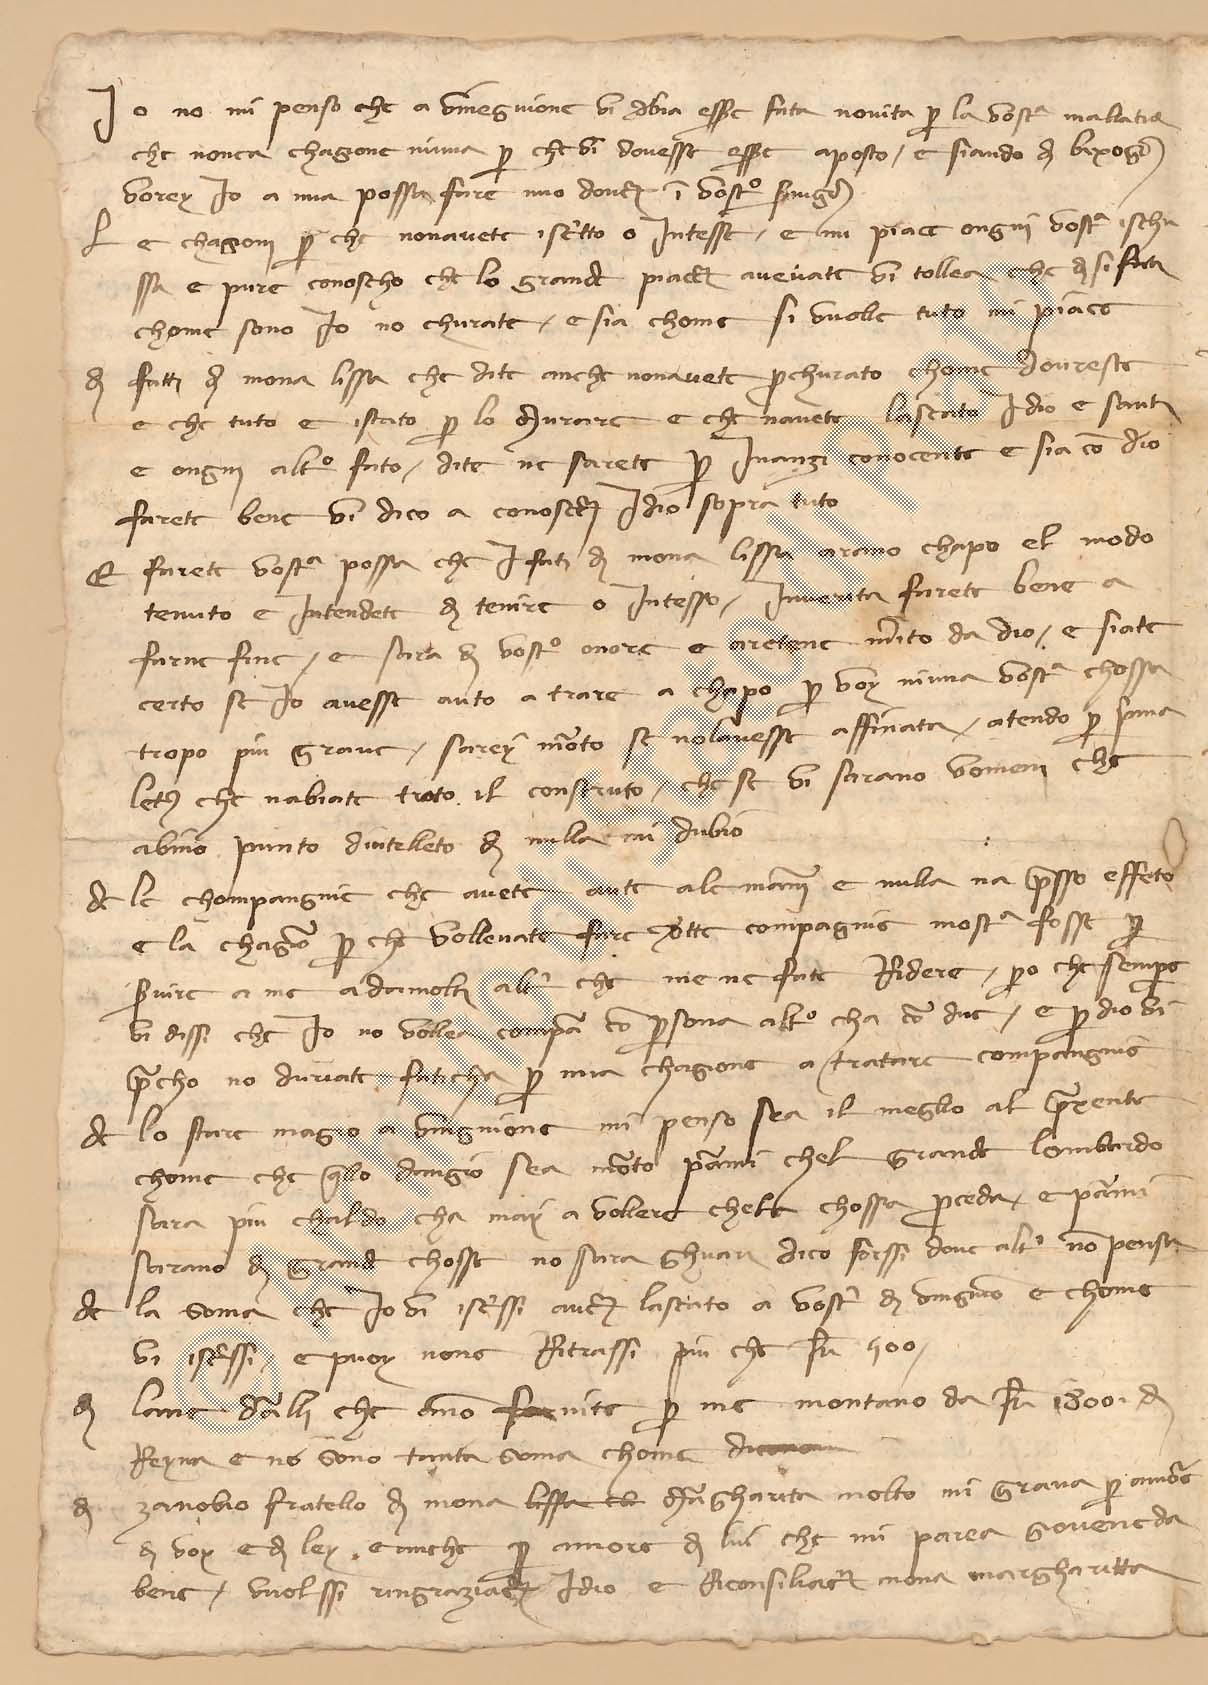 Io no mi penso che a vinegnione vi debia esse fata novita p la vostᵃ mallatia
che nonca chagone niuna p che vi dovesse esse aposto / e siando di bixogno
vorey Io a mia possa fare
L e chagoni p che nonavete iscritto o Intesse / e mi piace ongni vostᵃ ischu
ssa e pure conoscho che lo grande piacer avevate vi tollea che di si fata
chome sono Io no churate / e sia chome si vuolle tuto mi piace
di fatti di mona lissa che dite anche nonavete pchurato chome dovreste
e che tuto e istato p lo durare e che navete lasciato Idio e santi
e ongni altᵒ fato / dite ne sarete p Inanzi conocente e sia co dio
farete bene vi dico a conoscer Idio sopra tuto
E farete vostᵃ possa che I fati di mona lissa arano chapo el modo
tenuto e Intendete di tenire o Intesso / Inverita farete bene a
farne fine / e sara di vostᵒ onore e aretene merito da dio / e siate
certo se Io avesse auto a trare a chapo p voy niuna vostᵃ chossa
tropo piu grave / sarey morto se nolavesse affinata / atendo p pma
letera che nabiate trato il construto / che se vi sarano vomeni che
abino punto dintelleto di nulla mi dubio
de le chompangnie che avete aute ale mani e nulla na preso effeto
e la chagone p che vollevate fare sotte compagnie mostᵃ fosse p
servire a me a da molti altri che me ne fate Ridere / po che sempe
vi dissi che Io no vollea compa co psona altᵒ cha co due / e p dio vi
precho no duriate faticha p mia chagione a tratare compangnie
de lo stare magio a vingnione mi penso sea il meglo al prexente
chome che quelo dangio sea morto parmi chel grande lombardo
sara piu chaldo cha may a vollere chele chossa proceda / e parmi
sarano di grande chosse no sara ghuari dico forssi dove altri no pensa
de la soma che Io vi iscrissi aver lasciato a vostri di vingnone e chome
vi iscrissi / e puoy none Ritrassi piu che fr 500 /
di lane dalli che ano fornite p me montano da fr 1800 di
Reyna e no sono tanta soma chome
di zanobio fratello di mona margharita molto mi grava p amore
di voy e di ley e anche p amore di lui che mi parea goveneda
bene / vuolssi ringraziare Idio e Riconsiliare mona margharitta